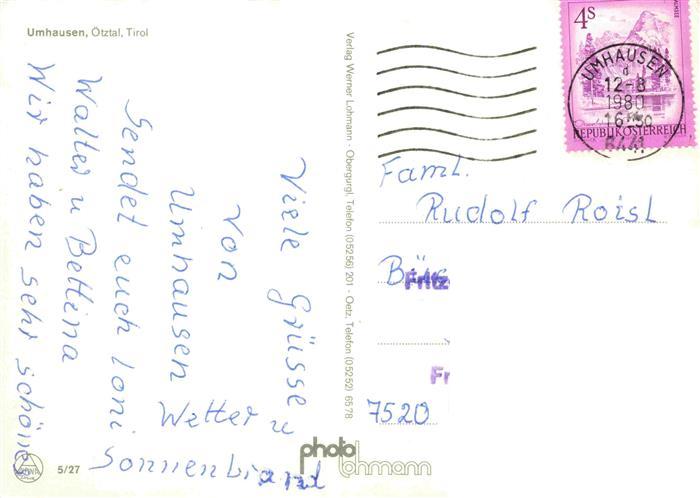 Umhausen, Ötztal, Tirol
Viele Grüsse
von
Umhausen
Sendet euch Loni
Walter u Bettina
Wir haben sehr schönes
Wetter u
Sonnenbrand
5/27
Verlag Werner Lohmann - Obergurgl, Telefon (05256) 201 - Oetz, Telefon (05252) 6578
photo
lohmann
4S
REPUBLIK ÖSTERREICH
UMHAUSEN
d
12-8
1980
16-30
6441
Faml.
Rudolf Roisl
Fritz
Fr
7520